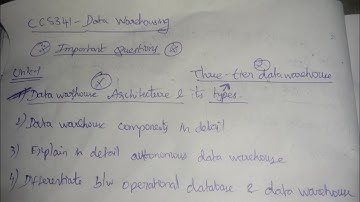 CCS341 - Data Warehousing
Important Questions
Unit-1
Three-tier data warehouse
1) Data warehouse Architecture & its types.
2) Data warehouse components in detail
3) Explain in detail autonomous data warehouse
4) Differentiate b/w operational database & data warehouse